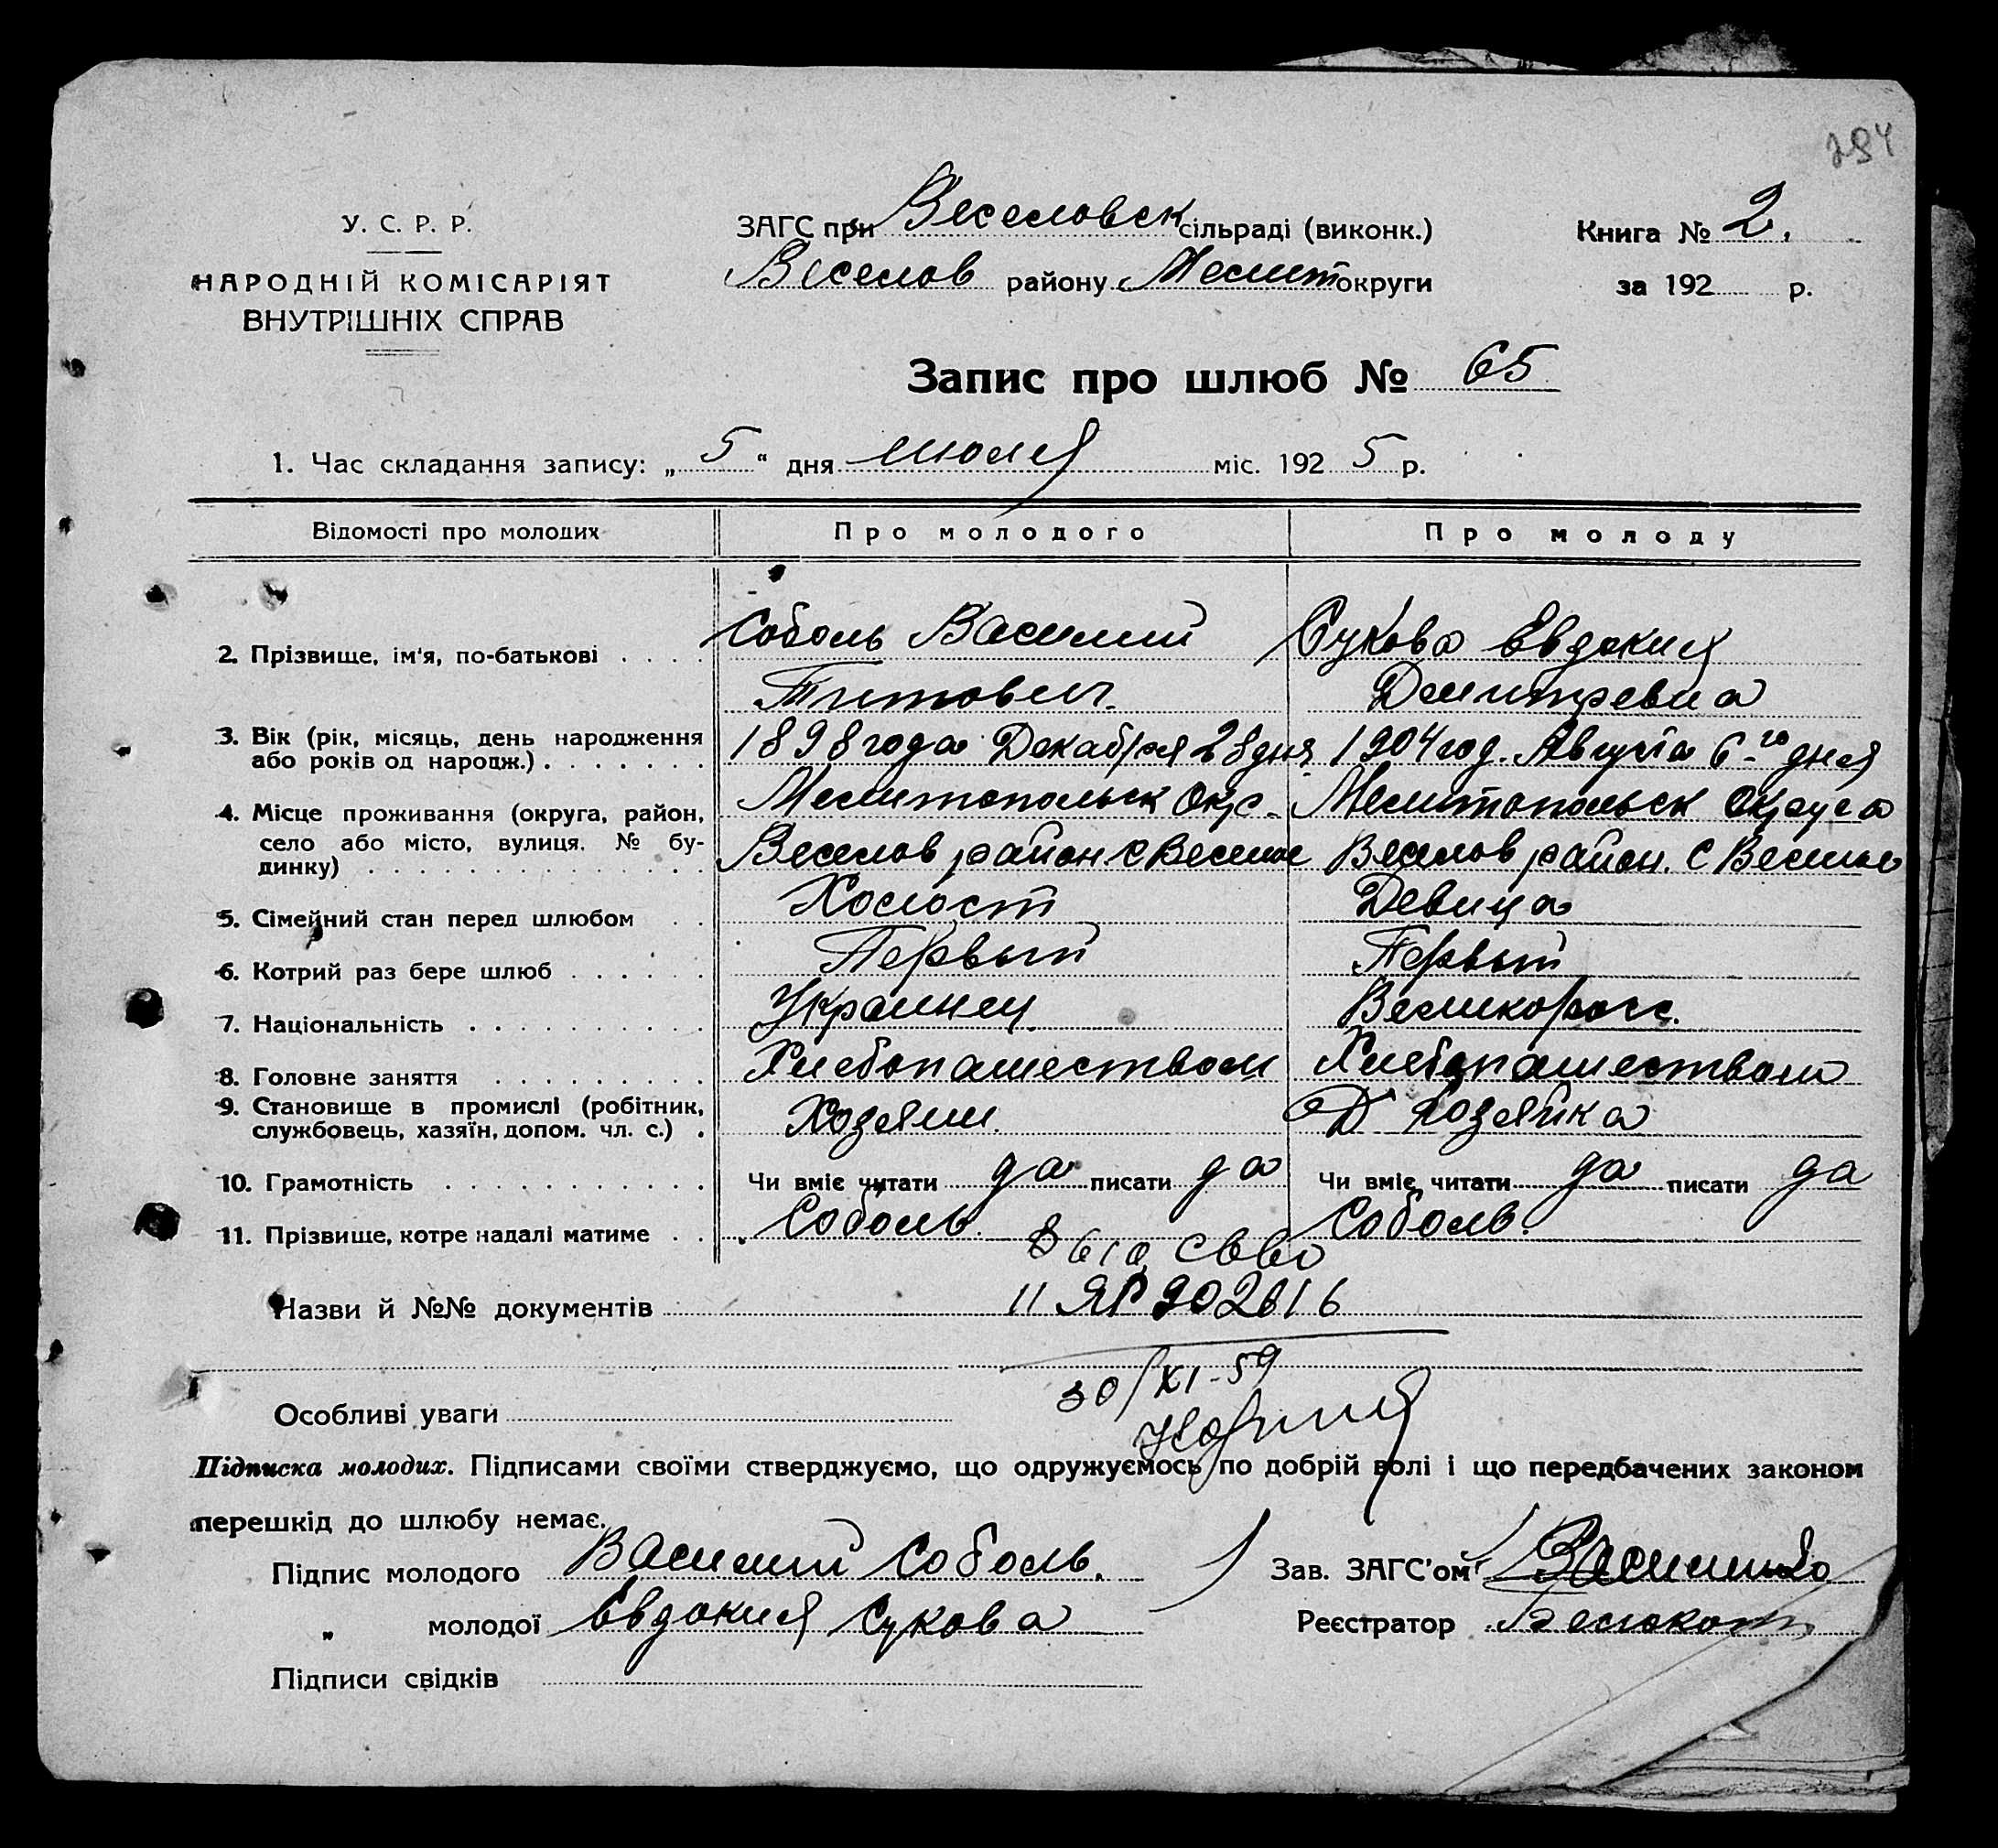 294
У. С. Р. Р.
НАРОДНІЙ КОМІСАРІЯТ
ВНУТРІШНІХ СПРАВ
ЗАГС при Веселовск сільраді (виконк.)
Веселов району Мелит округи
Книга № 2.
за 192 р.
Запис про шлюб № 65
1. Час складання запису: „ 5 “ дня июля міс. 192 5 р.
Відомості про молодих Про молодого Про молоду
2. Прізвище, ім'я, по-батькові . . . . Соболь Василий Сукова Евдокия
Титович. Дмитревна
3. Вік (рік, місяць, день народження 1898 года Декабря 28 дня 1904 год. Августа 6-го дня
або років од народж.) . . . . . . .
4. Місце проживання (округа, район, Мелитопольск Окр. Мелитопольск Округа
село або місто, вулиця. № бу- Веселов район с Веселое Веселов район. С Веселое
динку) . . . . . . . . . . . . . .
5. Сімейний стан перед шлюбом . . Холост Девица
6. Котрий раз бере шлюб . . . . . . Первый Первый
7. Національність . . . . . . . . . . Украинец Великоросс.
8. Головне заняття . . . . . . . . . Хлебопашеством Хлебопашеством
9. Становище в промислі (робітник, Хозяин. Д хозяйка
службовець, хазяїн, допом. чл. с.) .
10. Грамотність . . . . . . . . . . . Чи вміє читати да писати да Чи вміє читати да писати да
11. Прізвище, котре надалі матиме . . Соболь. Соболь.
св-во
Назви й №№ документів II ЯР 902616
30/XI-59
Особливі уваги
Підписка молодих. Підписами своїми стверджуємо, що одружуємось по добрій волі і що передбачених законом
перешкід до шлюбу немає.
Підпис молодого Василий Соболь. Зав. ЗАГС'ом
„ молодої Евдокия Сукова Реєстратор
Підписи свідків